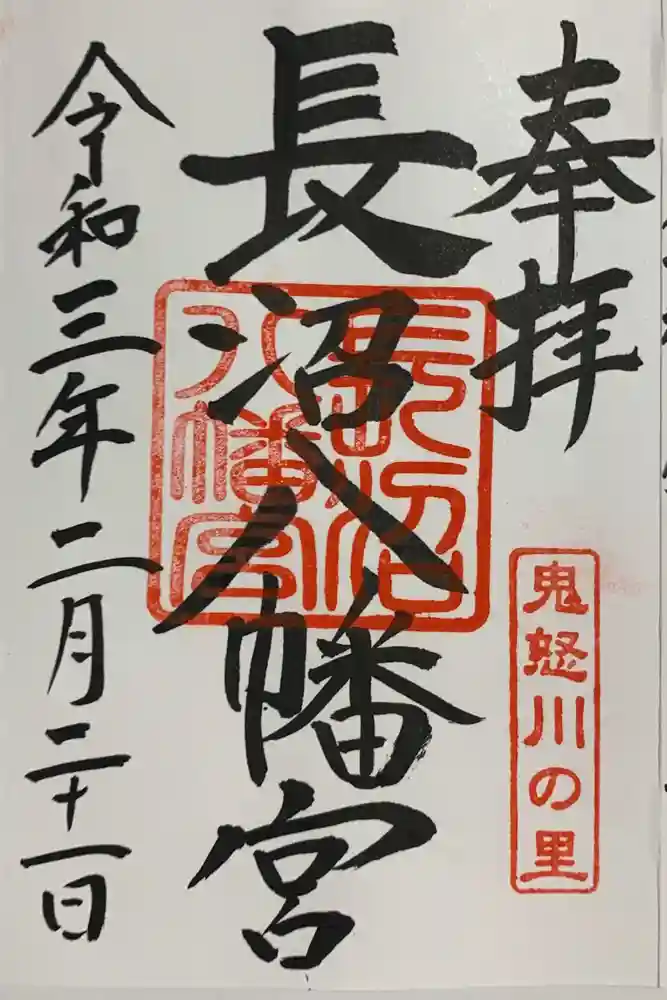 奉拝
鬼怒川の里
長沼八幡宮
長沼八幡宮
令和三年二月二十一日